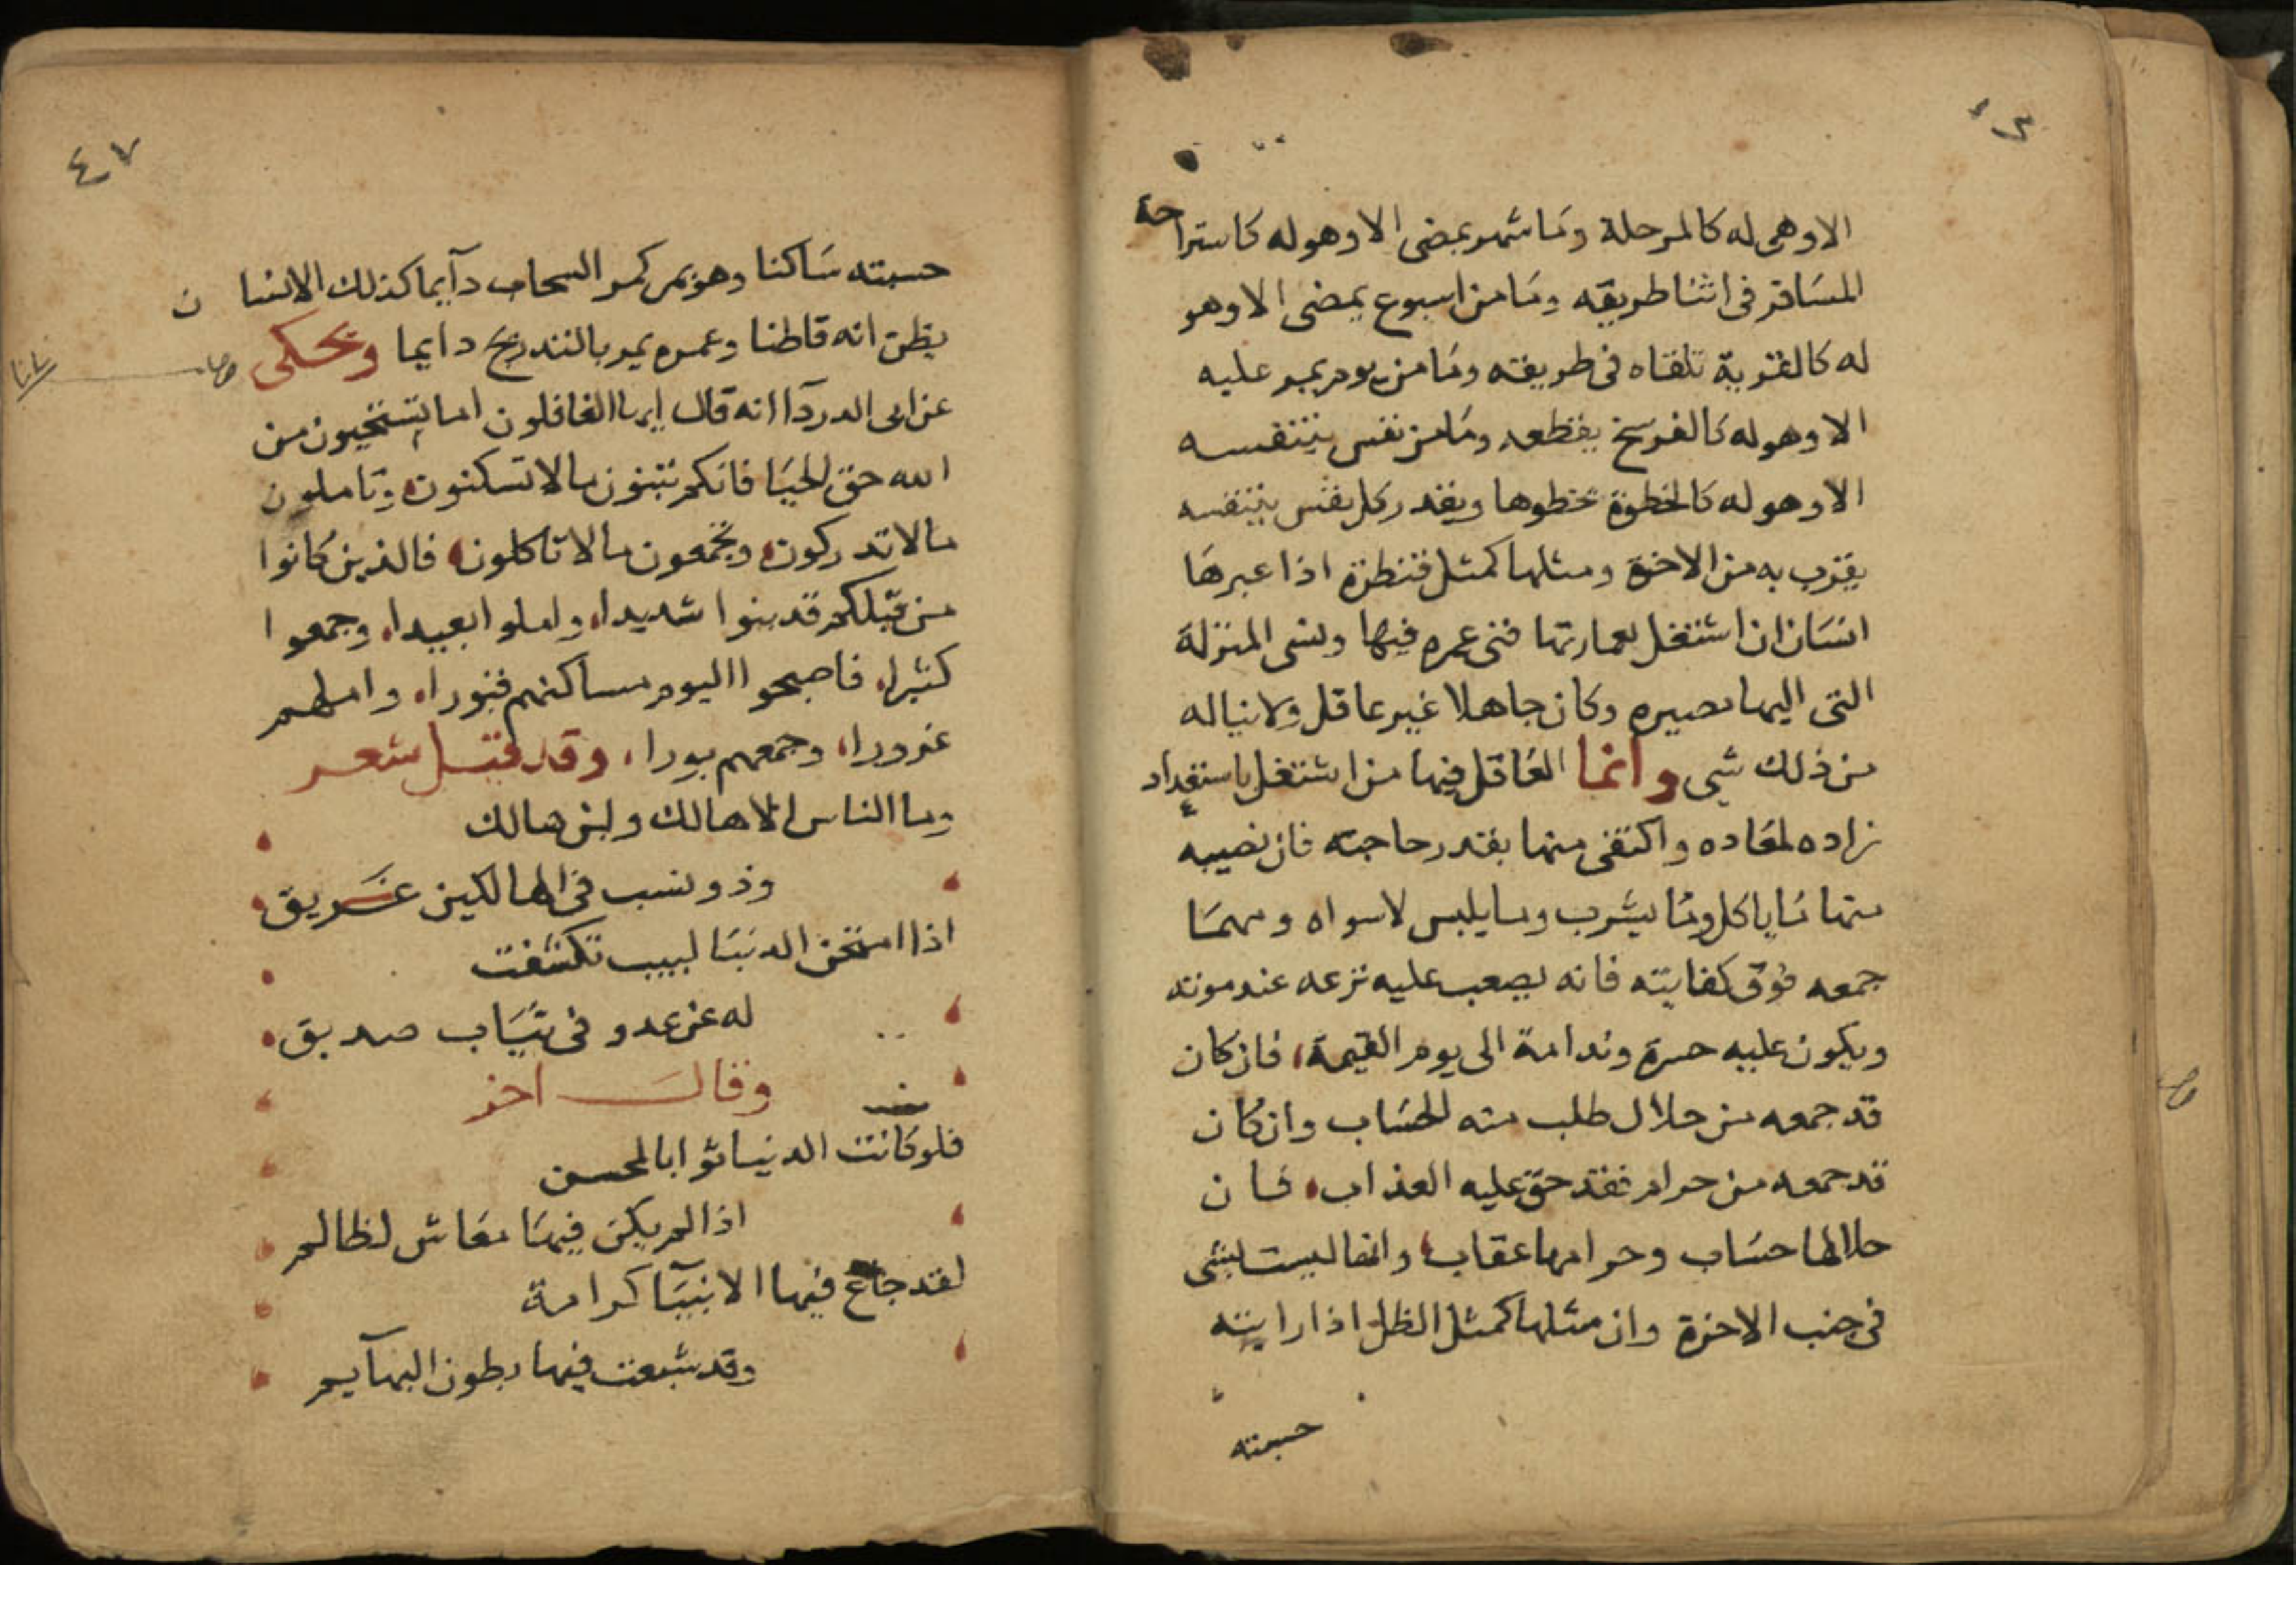 الا وهى له كالمرحلة وما شهر يمضى الا وهو له كاستراحة
المسافر فى اثنا طريقه وما من اسبوع يمضى الا وهو
له كالقرية تلقاه فى طريقه وما من يوم يمر عليه
الا وهو له كالفرسخ يقطعه وما من نفس يتنفسه
الا وهو له كالخطوة يخطوها وبقدر كل نفس يتنفسه
يقرب به من الاخرة ومثلها كمثل قنطرة اذا عبرها
انسان ان اشتغل بعمارتها فنى عمره فيها ونسى المنزلة
التى اليها مصيره وكان جاهلا غير عاقل ولا يناله
من ذلك شى وانما العاقل فيها من اشتغل باستعداد
زاده لمعاده واكتفى منها بقدر حاجته فان نصيبه
منها ما ياكل وما يشرب وما يلبس لا سواه ومهما
جمعه فوق كفايته فانه يصعب عليه نزعه عند موته
ويكون عليه حسرة وندامة الى يوم القيمة، فان كان
قد جمعه من حلال طلب منه الحساب وان كان
قد جمعه من حرام فقد حق عليه العذاب، فان
حلالها حساب وحرامها عقاب، وانها ليست بشى
فى جنب الاخرة وان مثلها كمثل الظل اذا رايته
حسبته
٤٧
حسبته ساكنا وهو يمر كمر السحاب دآيما كذلك الانسان
يظن انه قاطنا وعمره يمر بالتدريج دايما ويحكى
عن ابى الدردآ انه قال ايها الغافلون اما تستحيون من
الله حق الحيا فانكم تبنون مالا تسكنون، وتاملون
مالا تدركون، وتجمعون مالا تاكلون، فالذين كانوا
من قبلكم قد بنوا شديدا، واملوا بعيدا، وجمعوا
كثيرا، فاصبحوا اليوم مساكنهم قبورا، واملهم
غرورا، وجمعهم بورا، وقد قيل شعر
وما الناس الا هالك وابن هالك
وذو نسب فى الهالكين عريق
اذا امتحن الدنيا لبيب تكشفت
له عن عدو فى ثياب صديق
وقال اخر
فلو كانت الدنيا ثوابا لمحسن
اذا لم يكن فيها معاش لظالم
لقد جاع فيها الانبيآ كرامة
وقد شبعت فيها بطون البهآيم